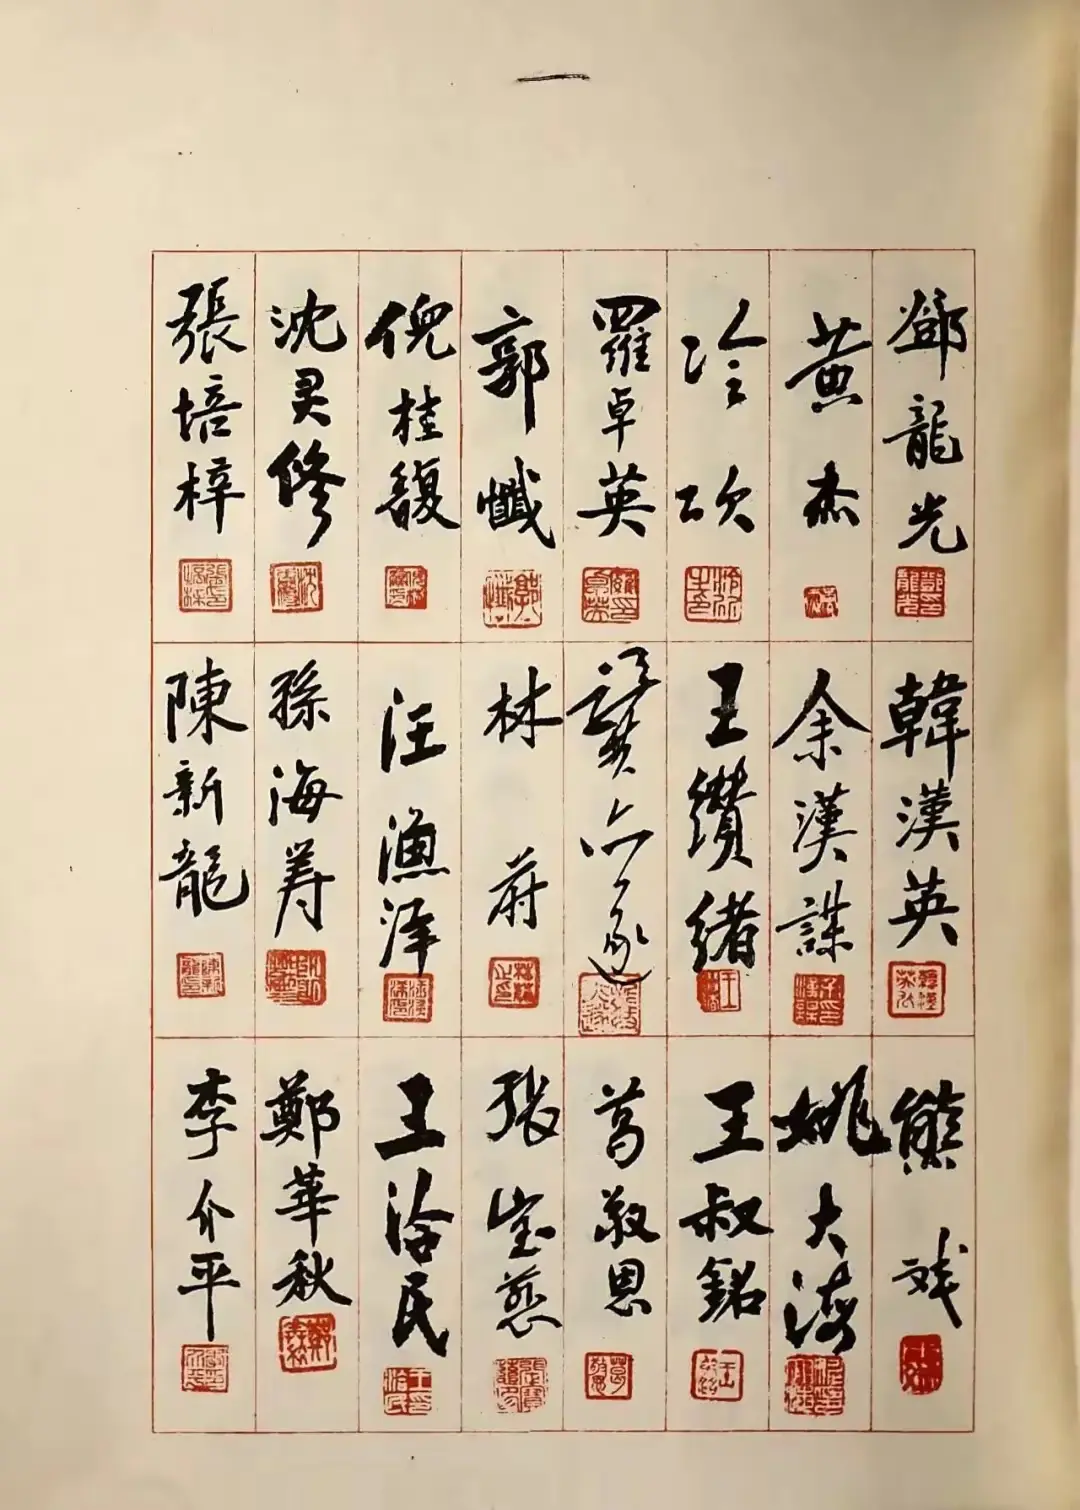 一
鄧龍光
黄杰
冷欣
羅卓英
郭懺
倪桂馥
沈灵修
張培梓
韓漢英
余漢謀
王纘緒
林蔚
汪漁洋
孫海寿
陳新龍
熊斌
姚大海
王叔銘
葛敬恩
张宝慈
王洽民
鄭華秋
李介平